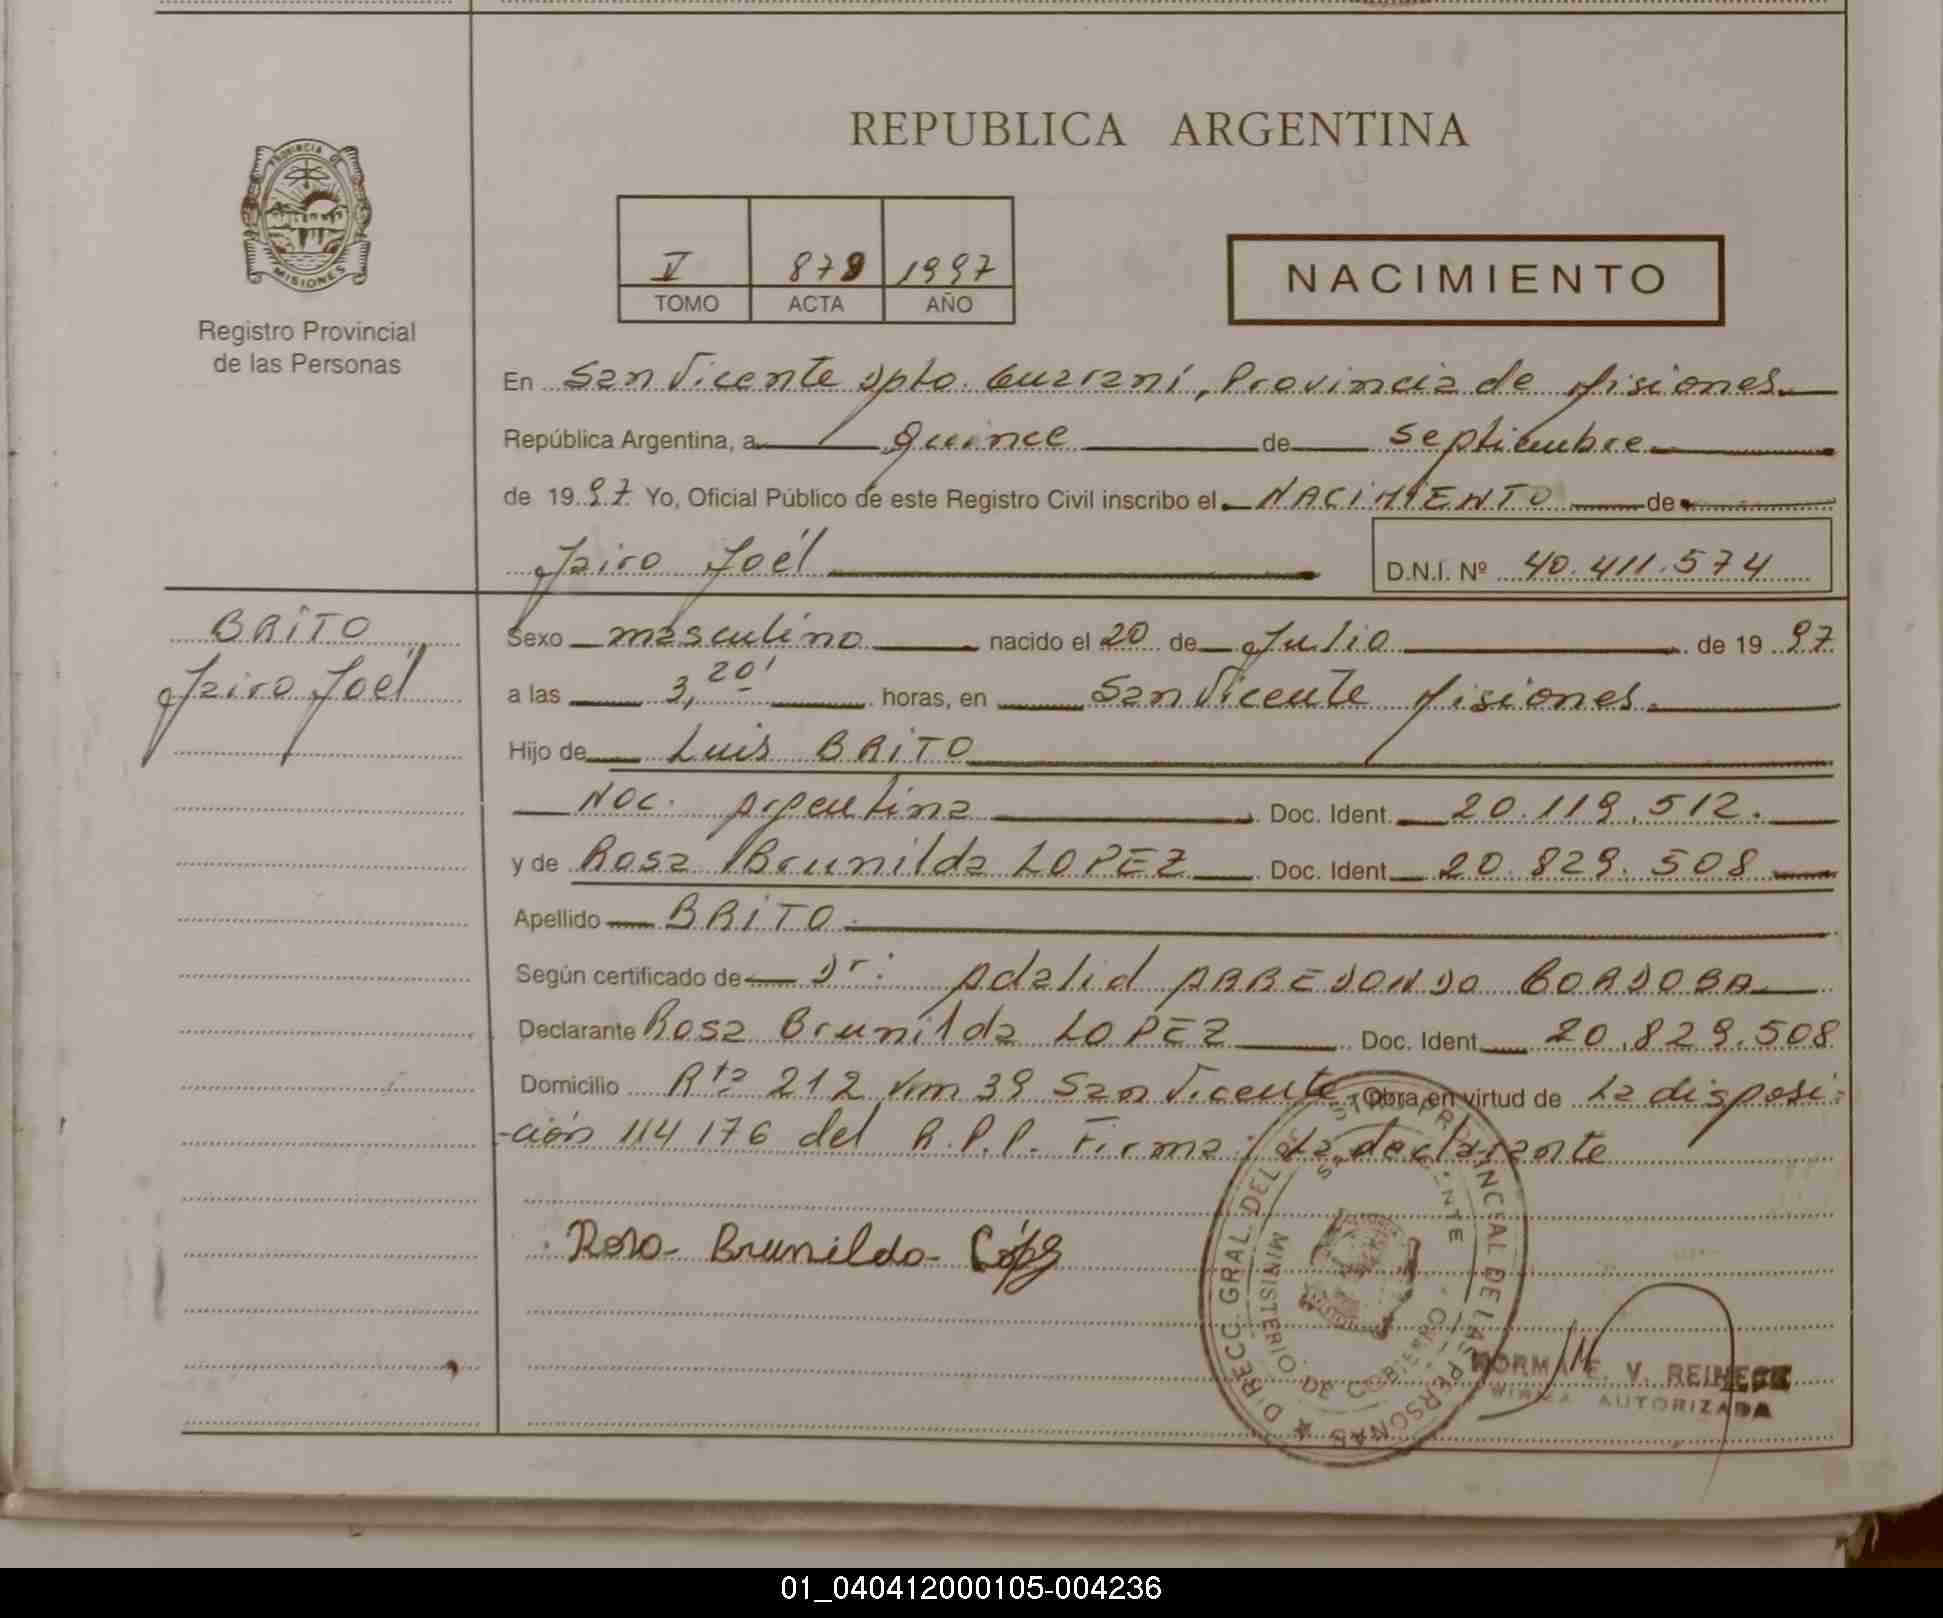 REPUBLICA ARGENTINA
PROVINCIA DE
MISIONES
Registro Provincial
de las Personas
V 879 1997
TOMO ACTA AÑO
NACIMIENTO
En San Vicente Dpto. Guaraní, Provincia de Misiones.
República Argentina, a Quince de Septiembre
de 1997 Yo, Oficial Público de este Registro Civil inscribo el NACIMIENTO de
Jairo Joél
D.N.I. Nº 40.411.574
BRITO
Jairo Joél
Sexo masculino nacido el 20 de Julio de 1997
a las 3,20' horas, en San Vicente Misiones.
Hijo de Luis BRITO
Nac. Argentina Doc. Ident. 20.119.512.
y de Rosa Brunilda LOPEZ Doc. Ident. 20.829.508
Apellido BRITO
Según certificado de Dr: Adalid ARREDONDO CORDOBA
Declarante Rosa Brunilda LOPEZ Doc. Ident. 20.829.508
Domicilio Rta 212 Km 39 San Vicente Obra en virtud de La disposi-
-ción 114176 del R.P.P. Firma: La declarante
Rosa Brunilda López
DIRECC. GRAL. DEL REGISTRO PROVINCIAL DE LAS PERSONAS
MINISTERIO DE GOBIERNO
SAN VICENTE
NORMA E. V.
AUTORIZADA
01_040412000105-004236